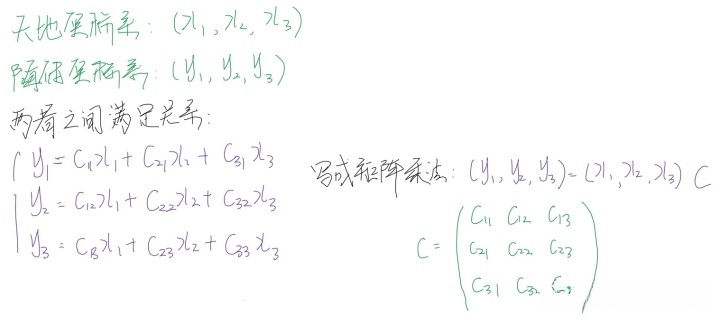 天地坐标系：(x₁, x₂, x₃)
随体坐标系：(y₁, y₂, y₃)
两者之间满足关系：
y₁ = C₁₁x₁ + C₂₁x₂ + C₃₁x₃
y₂ = C₁₂x₁ + C₂₂x₂ + C₃₂x₃
y₃ = C₁₃x₁ + C₂₃x₂ + C₃₃x₃
写成矩阵乘法：(y₁, y₂, y₃) = (x₁, x₂, x₃) C
C = ( C₁₁ C₁₂ C₁₃
C₂₁ C₂₂ C₂₃
C₃₁ C₃₂ )